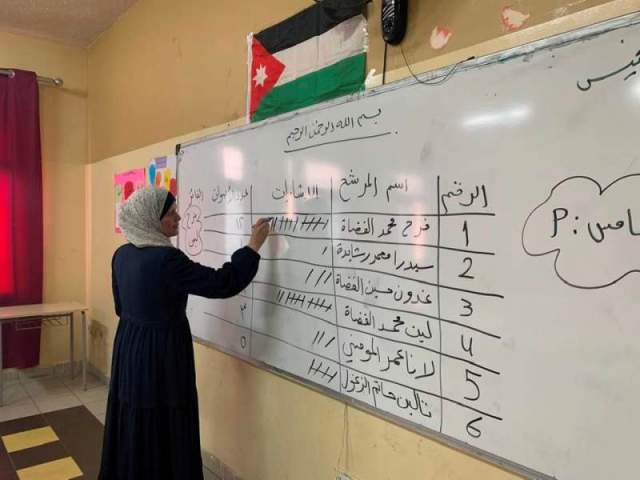 بسم الله الرحمن الرحيم
الرقم اسم المرشح الاشارات عدد الأصوات الفائز
1 فرح محمد القضاة
2 سيدرا محمد رشايدة
3 غدون حسين القضاة
4 لين محمد القضاة ٣
5 لانا عمر المومني ٥
6 تالين حاتم الزغول
P: